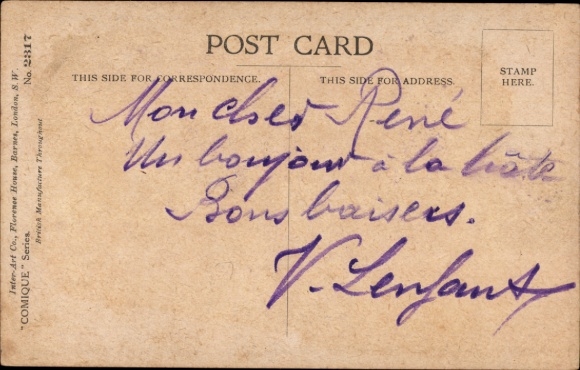 POST CARD
THIS SIDE FOR CORRESPONDENCE.
THIS SIDE FOR ADDRESS.
STAMP
HERE.
Mon cher René
Un bonjour à la hâte
Bons baisers.
V. Lenfant
Inter-Art Co., Florence House, Barnes, London, S.W.
"COMIQUE" Series.
British Manufacture Throughout
No. 2317